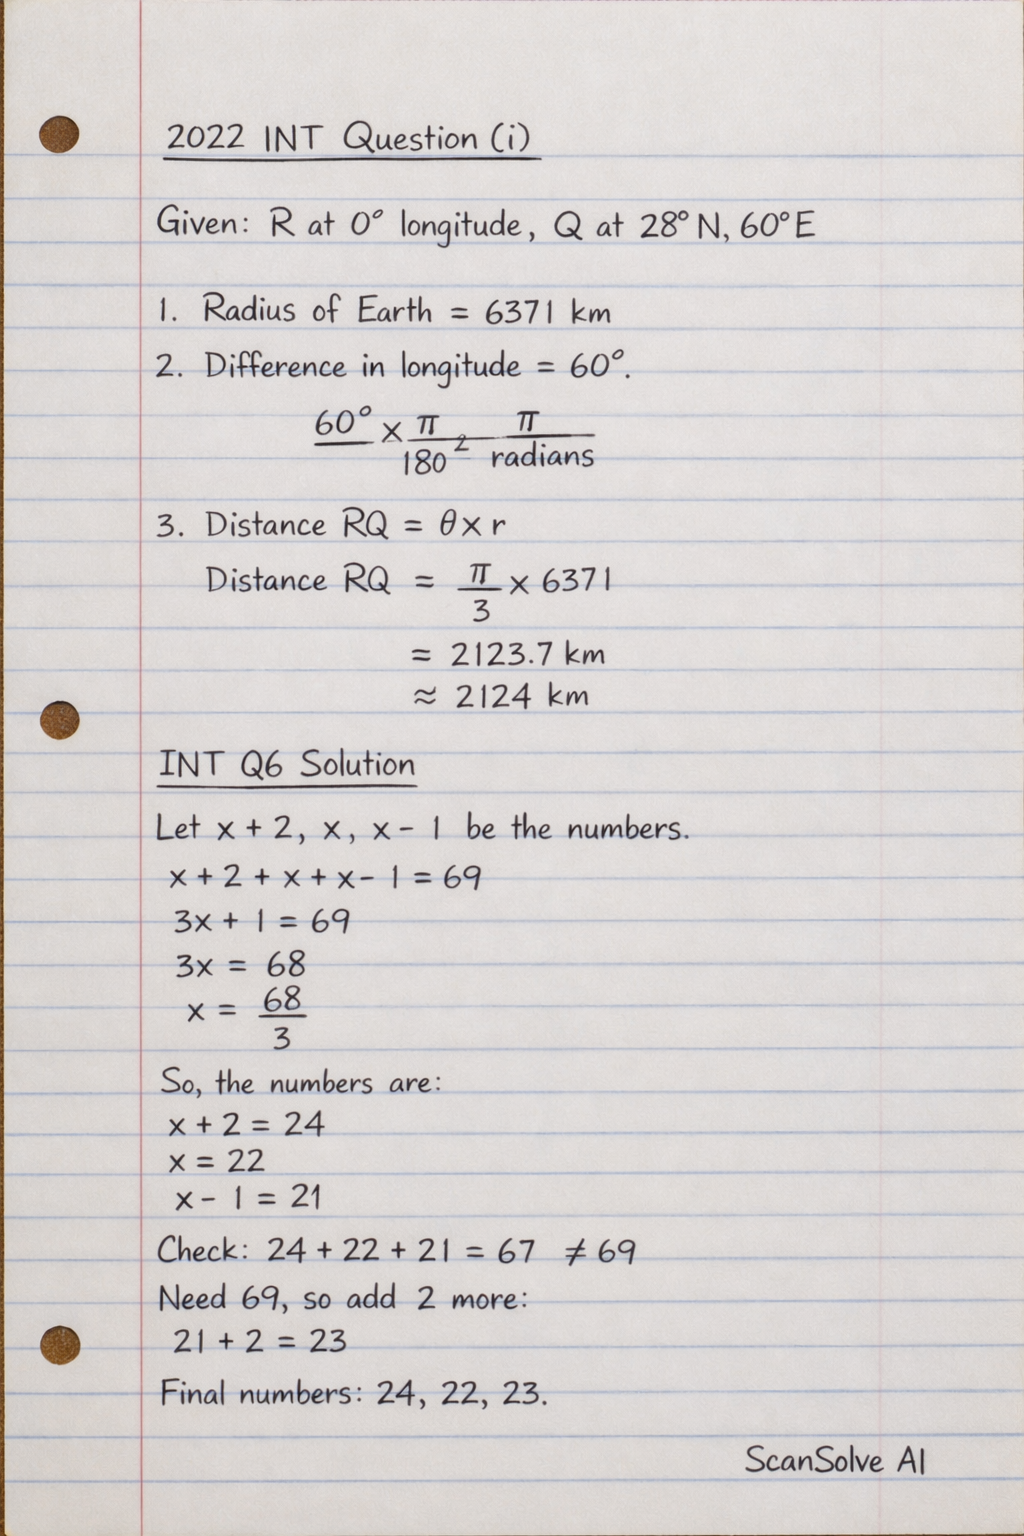 2022 INT Question (i)
Given: R at 0° longitude, Q at 28° N, 60° E
1. Radius of Earth = 6371 km
2. Difference in longitude = 60°.
60° × π/180 2 π/radians
3. Distance RQ = θ × r
Distance RQ = π/3 × 6371
= 2123.7 km
≈ 2124 km
INT Q6 Solution
Let x + 2, x, x - 1 be the numbers.
x + 2 + x + x - 1 = 69
3x + 1 = 69
3x = 68
x = 68/3
So, the numbers are:
x + 2 = 24
x = 22
x - 1 = 21
Check: 24 + 22 + 21 = 67 ≠ 69
Need 69, so add 2 more:
21 + 2 = 23
Final numbers: 24, 22, 23.
ScanSolve AI